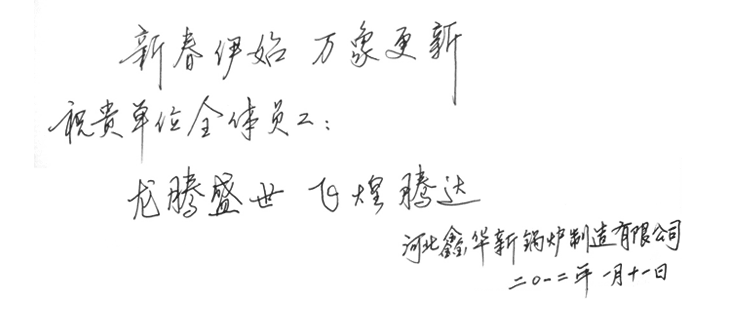 新春伊始 万象更新
祝贵单位全体员工：
龙腾盛世 飞煌腾达
河北鑫华新锅炉制造有限公司
二〇一二年一月十一日